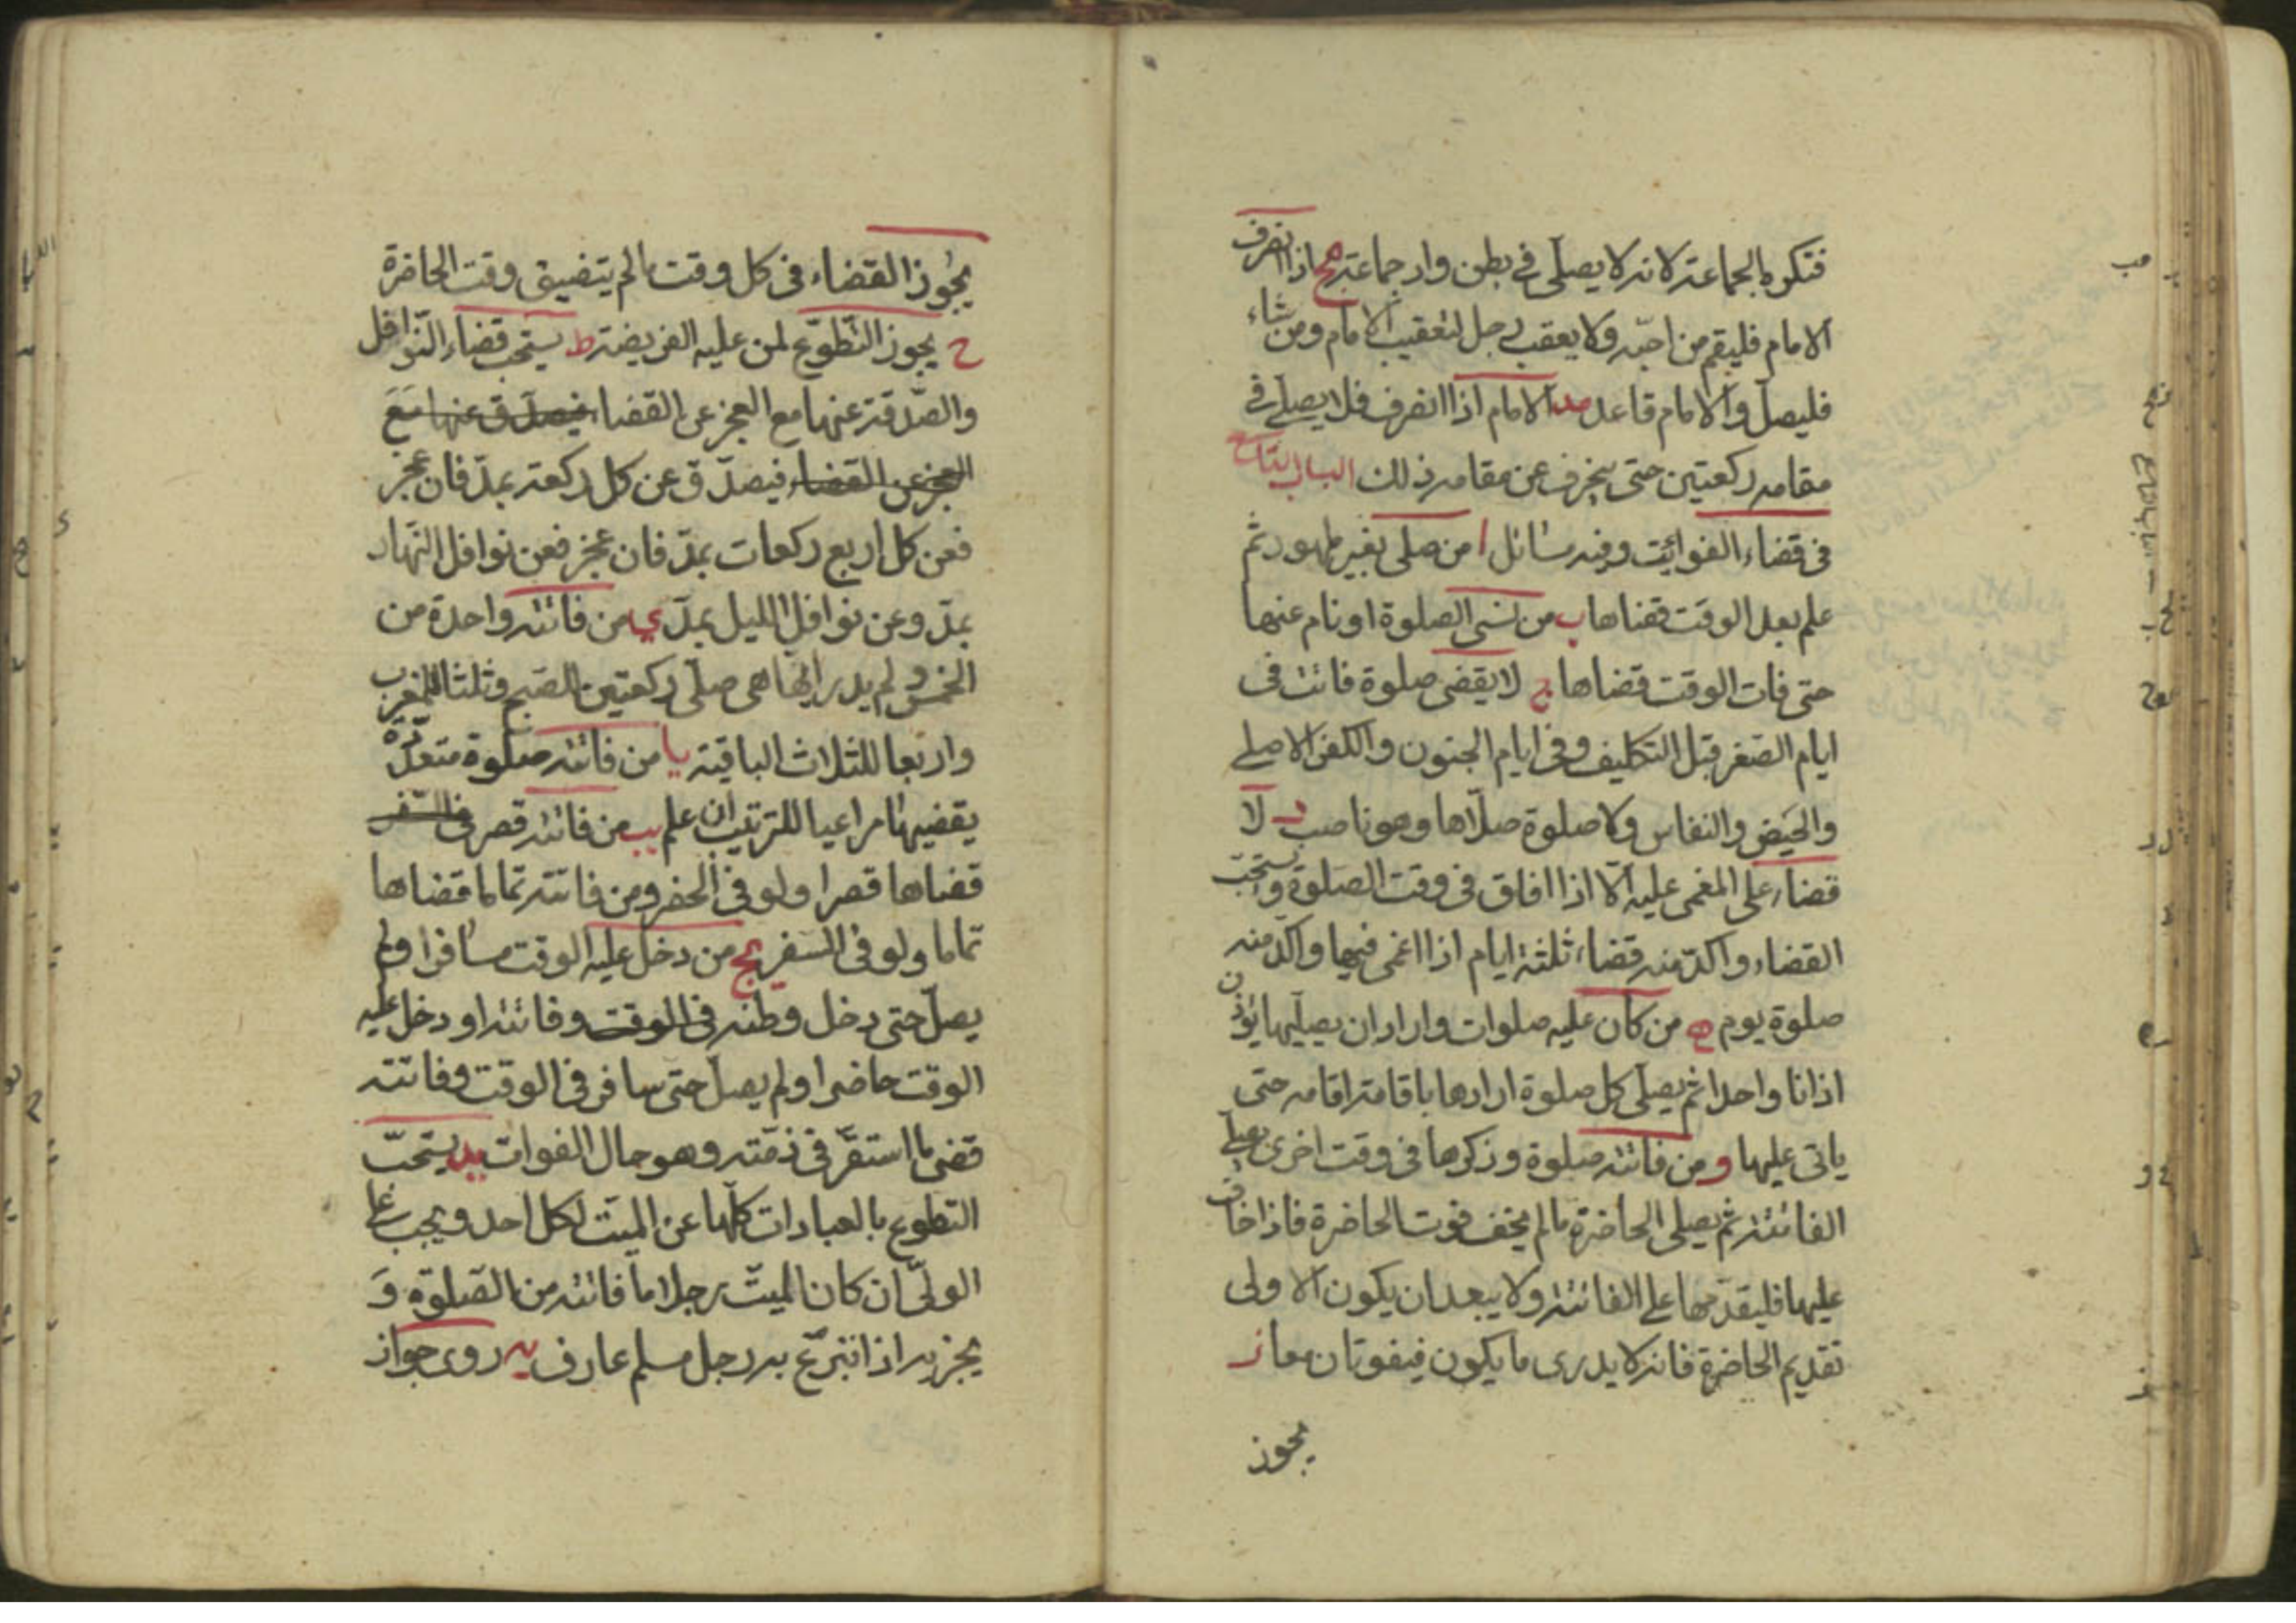 فتكره الجماعة لانه لا يصلى فى بطن واد جماعة مج اذا انصرف
الامام فليقم من احبّه ولا يعقب رجل لتعقيب الامام ومن شاء
فليصلّ والامام قاعد مد الامام اذا انصرف فلا يصلّى فى
مقامه ركعتين حتى ينحرف عن مقامه ذلك الباب التاسع
فى قضاء الفوائت وفيه مسائل ا من صلى بغير طهور ثم
علم بعد الوقت قضاها ب من نسى الصلوة او نام عنها
حتى فات الوقت قضاها ج لا يقضى صلوة فائتة فى
ايام الصغر قبل التكليف وفى ايام الجنون والكفر الاصلى
والحيض والنفاس ولا صلوة صلّاها وهو ناصب د لا
قضاء على المغمى عليه الّا اذا افاق فى وقت الصلوة ويستحبّ
القضاء واكدّ منه قضاء ثلثة ايام اذا اغمى فيها واكد منه
صلوة يوم ه من كان عليه صلوات واراد ان يصليها يؤذن
اذانا واحدا ثم يصلى كل صلوة ارادها باقامة اقامه حتى
ياتى عليها و من فاتته صلوة وذكرها فى وقت اخرى يصلى
الفائتة ثم يصلى الحاضرة ما لم يخف فوت الحاضرة فاذا خاف
عليها فليقدّمها على الفائتة ولا يبعد ان يكون الاولى
تقديم الحاضرة فانه لا يدرى ما يكون فيفوتان معا ز
يجوز
يجوز القضاء فى كل وقت ما لم يتضيق وقت الحاضرة
ح يجوز التّطوّع لمن عليه الفريضة ط يستحب قضاء النّوافل
والصّدقة عنها مع العجز عن القضا فيصدق عنها مع
العجز عن القضاء فيصدّق عن كل ركعة بمدّ فان عجز
فعن كل اربع ركعات بمدّ فان عجز فعن نوافل النهار
بمدّ وعن نوافل الليل بمدّ ى من فاتته واحدة من
الخمس ولم يدر ايّها هى صلّى ركعتين للصبح وثلثا للمغرب
واربعا للثلاث الباقية يا من فاتته صلوة متعدّدة
يقضيها مراعيا للترتيب ان علم يب من فاتته قصر فى السّفر
قضاها قصرا ولو فى الحضر ومن فاتته تماما قضاها
تماما ولو فى السفر يج من دخل عليه الوقت مسافرا ولم
يصلّ حتى دخل وطنه فى الوقت وفاتته او دخل عليه
الوقت حاضرا ولم يصلّ حتى سافر فى الوقت وفاتته
قضى ما استقرّ فى ذمّته وهو حال الفوات يد يستحبّ
التطوع بالعبادات كلّها عن الميّت لكل احد ويجب على
الولىّ ان كان الميّت رجلا ما فاتته من الصّلوة و
يجزيه اذا تبرّع به رجل مسلم عارف يه روى جواز